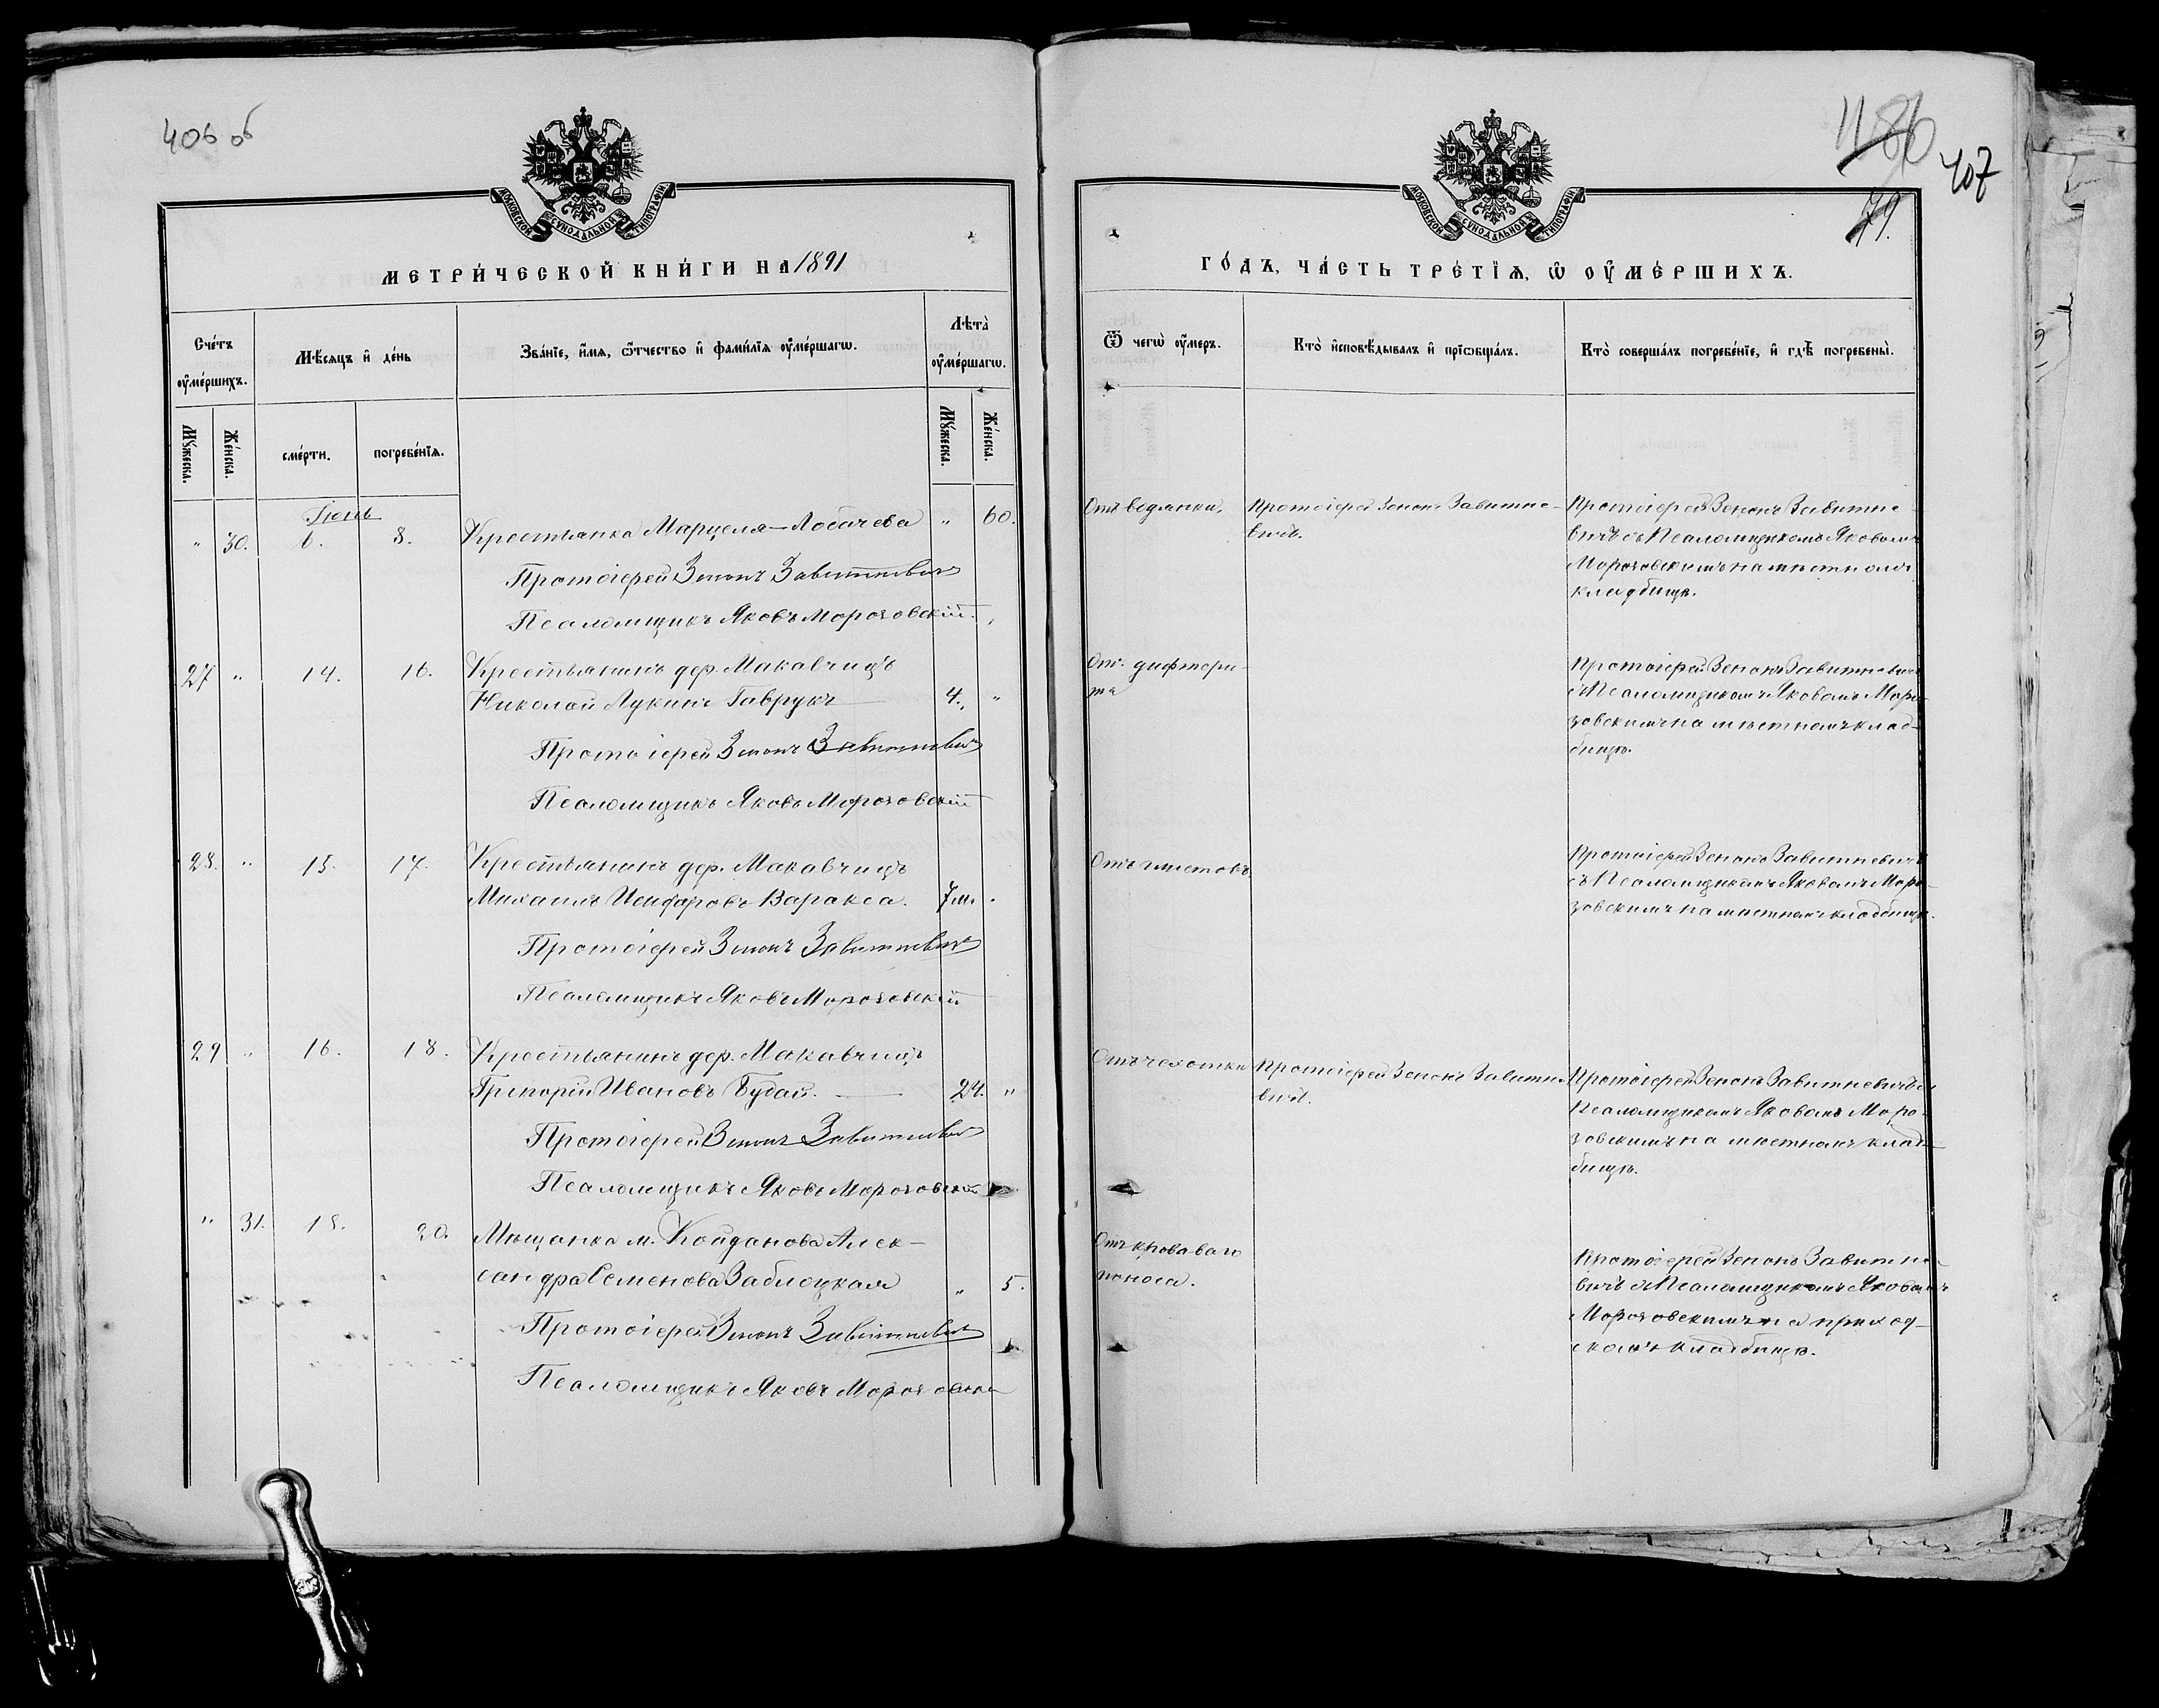 406 об
МОСКОВСКОЙ СѴНОДАЛЬНОЙ ТИПОГРАФІИ
МЕТРИ́ЧЕСКОЙ КНИ́ГИ НА 1891
Сче́тъ ᲂу҆ме́ршихъ.
Мѣ́сяцъ и҆ де́нь
Зва́нїе, и҆́мѧ, ѻ҆́тчество и҆ фами́лїѧ ᲂу҆ме́ршагѡ.
Лѣта̀ ᲂу҆ме́ршагѡ.
Мꙋ́жеска.
Же́нска.
сме́рти.
погребе́нїѧ.
Мꙋ́жеска.
Же́нска.
Іюнь
" 30. 6. 8. Крестьянка Марцеля Лобачева " 60.
Протоіерей Зенонъ Завитневичъ
Псаломщикъ Яковъ Морозовскій.
27 " 14. 16. Крестьянинъ дер. Макавчицъ
Николай Лукинъ Гаврукъ 4. "
Протоіерей Зенонъ Завитневичъ
Псаломщикъ Яковъ Морозовскій
28. " 15. 17. Крестьянинъ дер. Макавчицъ
Михаилъ Варакса. 7 м. "
Протоіерей Зенонъ Завитневичъ
Псаломщикъ Яковъ Морозовскій
29 " 16. 18. Крестьянинъ дер. Макавчицъ
Григорій Ивановъ Будай. 24. "
Протоіерей Зенонъ Завитневичъ
Псаломщикъ Яковъ Морозовскій
" 31. 18. 20. Мѣщанка м. Койданова Алек-
сандра Семенова Заблоцкая " 5.
Протоіерей Зенонъ Завитневичъ
Псаломщикъ Яковъ Морозовскій
1186
407
79.
МОСКОВСКОЙ СѴНОДАЛЬНОЙ ТИПОГРАФІИ
ГО́ДЪ, ЧА́СТЬ ТРЕ́ТЇѦ, Ѡ҆ ОУ҆МЕ́РШИХЪ.
Ѿ чегѡ̀ ᲂу҆́меръ.
Кто̀ и҆сповѣ́дывалъ и҆ прїѡбща́лъ.
Кто̀ соверша́лъ погребе́нїе, и҆ гдѣ̀ погребены̀.
Отъ водянки,
Протоіерей Зенонъ Завитне-
вичъ.
Протоіерей Зенонъ Завитне-
вичъ съ Псаломщикомъ Яковомъ
Морозовскимъ на мѣстномъ
кладбищѣ.
Отъ дифтери-
та
Протоіерей Зенонъ Завитневичъ
съ Псаломщикомъ Яковомъ Моро-
зовскимъ на мѣстномъ клад-
бищѣ.
Отъ глистовъ
Протоіерей Зенонъ Завитневичъ
съ Псаломщикомъ Яковомъ Моро-
зовскимъ на мѣстномъ кладбищѣ.
Отъ чахотки
Протоіерей Зенонъ Завитне-
вичъ.
Протоіерей Зенонъ Завитневичъ съ
Псаломщикомъ Яковомъ Моро-
зовскимъ на мѣстномъ клад-
бищѣ.
Отъ кроваваго
поноса.
Протоіерей Зенонъ Завитне-
вичъ съ Псаломщикомъ Яковомъ
Морозовскимъ на приход-
скомъ кладбищѣ.